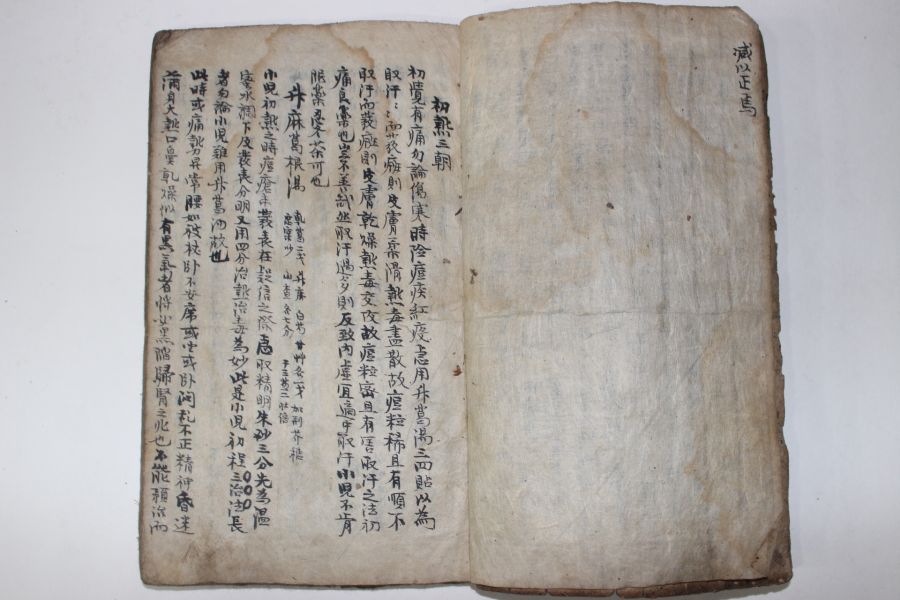 減以正焉
初熱三朝
初覺有痛勿論傷寒時陰痘疾紅疫急用升葛湯三四貼以為
取汗取汗而發痘則皮膚柔滑熱毒盡散故痘粒稀且有順不
取汗而發痘則皮膚乾燥熱毒交攻故痘粒密且有害取汗之法初
痛良藥也豈不善哉然取汗過多則反致內虛宜適中取汗小児不肯
服藥忍冬茶可也
升麻葛根湯
乾葛二戋 升麻 白芍 甘艸各一戋 加荊芥穗
忍冬 山査各七分
小児初熱之時痘瘡未發表在疑信之際急取精明朱砂三分先為溫
蜜水調下及發表分明又用四分治熱治毒為妙此是小児初程三治法長
者勿論小児雖用升葛湯故也
此時或痛勢異常腰如被杖卧不安席或坐或卧悶乱不正精神昏迷
滿身大熱口鼻乾燥似有黑氣者將必黑陷歸腎之兆也不能預治而